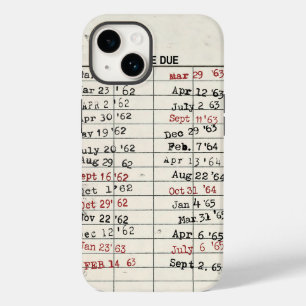 E DUE
Mar 29 '63
Mar 23 '62 Apr 12 '63
APR 2 '62 July 2 63
Apr 30 '62 Sept 11 '63
May 19 '62 Dec 29 '63
July 20 '62 Feb. 7 '64
Aug 29 62 Apr 13 '64
Sept 16 '62 Aug 25 '64
Oct 1 '62 Oct 31 '64
Oct 29 '62 Jan 4 '65
Nov 22 '62 Mar 31 '65
Dec 12 '62 Apr 6 '65
Jan 23 '63 July 6 '65
FEB 14 63 Sept 2. 65